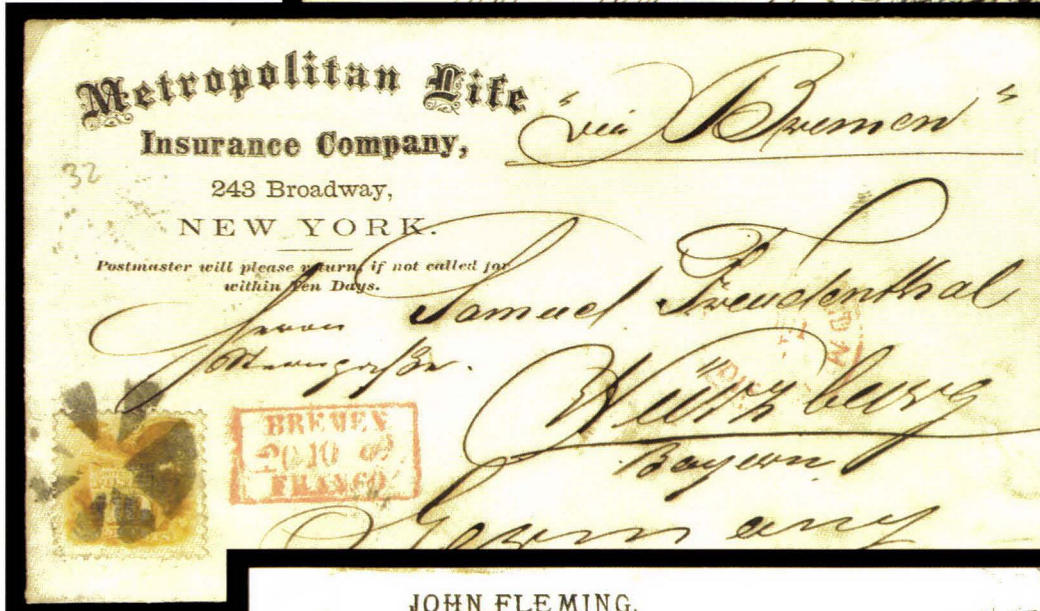 Metropolitan Life
Insurance Company,
243 Broadway,
NEW YORK.
Postmaster will please return, if not called for
within Ten Days.
"via Bremen"
Herrn Samuel Freudenthal
Würzburg
Bayern
Germany
BREMEN
20 10 69
FRANCO
32
JOHN FLEMING.